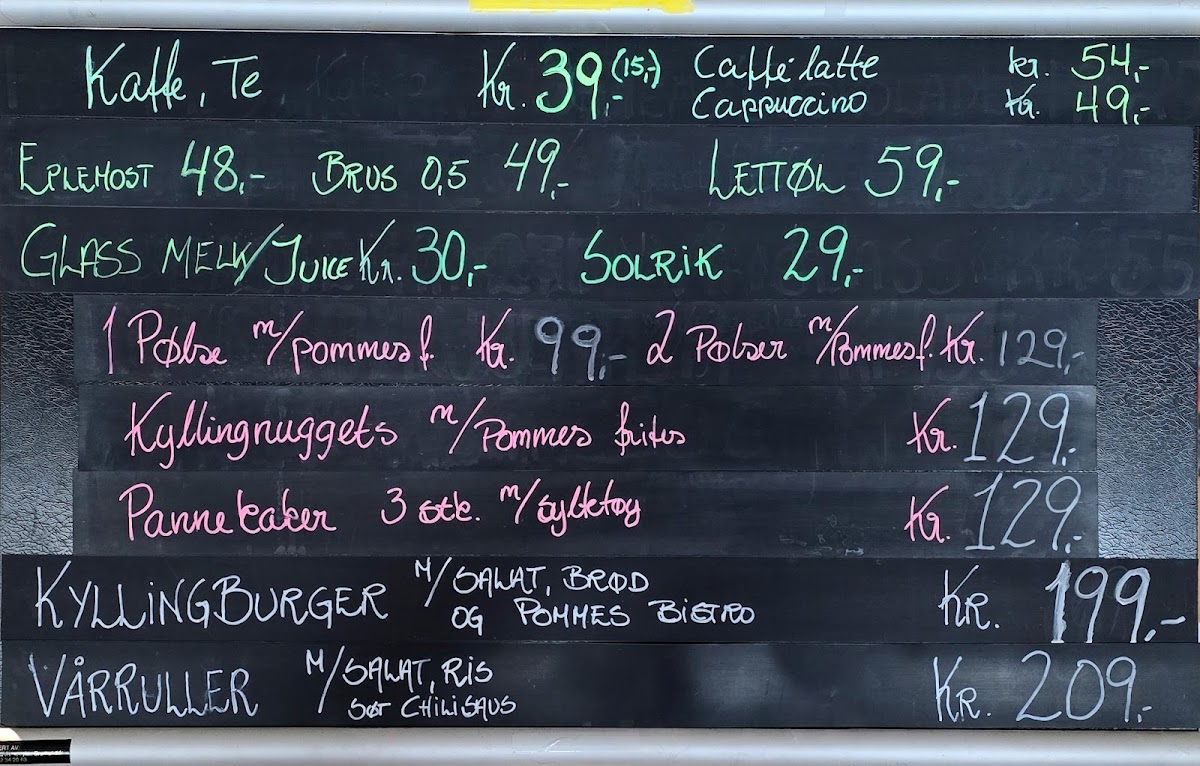 Kaffe, Te Kr. 39,- (15,-) Caffé latte kr. 54,-
Cappuccino Kr. 49,-
EPLEMOST 48,- BRUS 0,5 49,- LETTØL 59,-
GLASS MELK/JUICE Kr. 30,- SOLRIK 29,-
1 Pølse m/pommes f. Kr. 99,- 2 Pølser m/Pommes f. Kr. 129,-
Kyllingnuggets m/Pommes frites Kr. 129,-
Pannekaker 3 stk. m/syltetøy Kr. 129,-
KYLLINGBURGER M/SALAT, BRØD KR. 199,-
OG POMMES BISTRO
VÅRRULLER M/SALAT, RIS KR. 209,-
SØT CHILISAUS